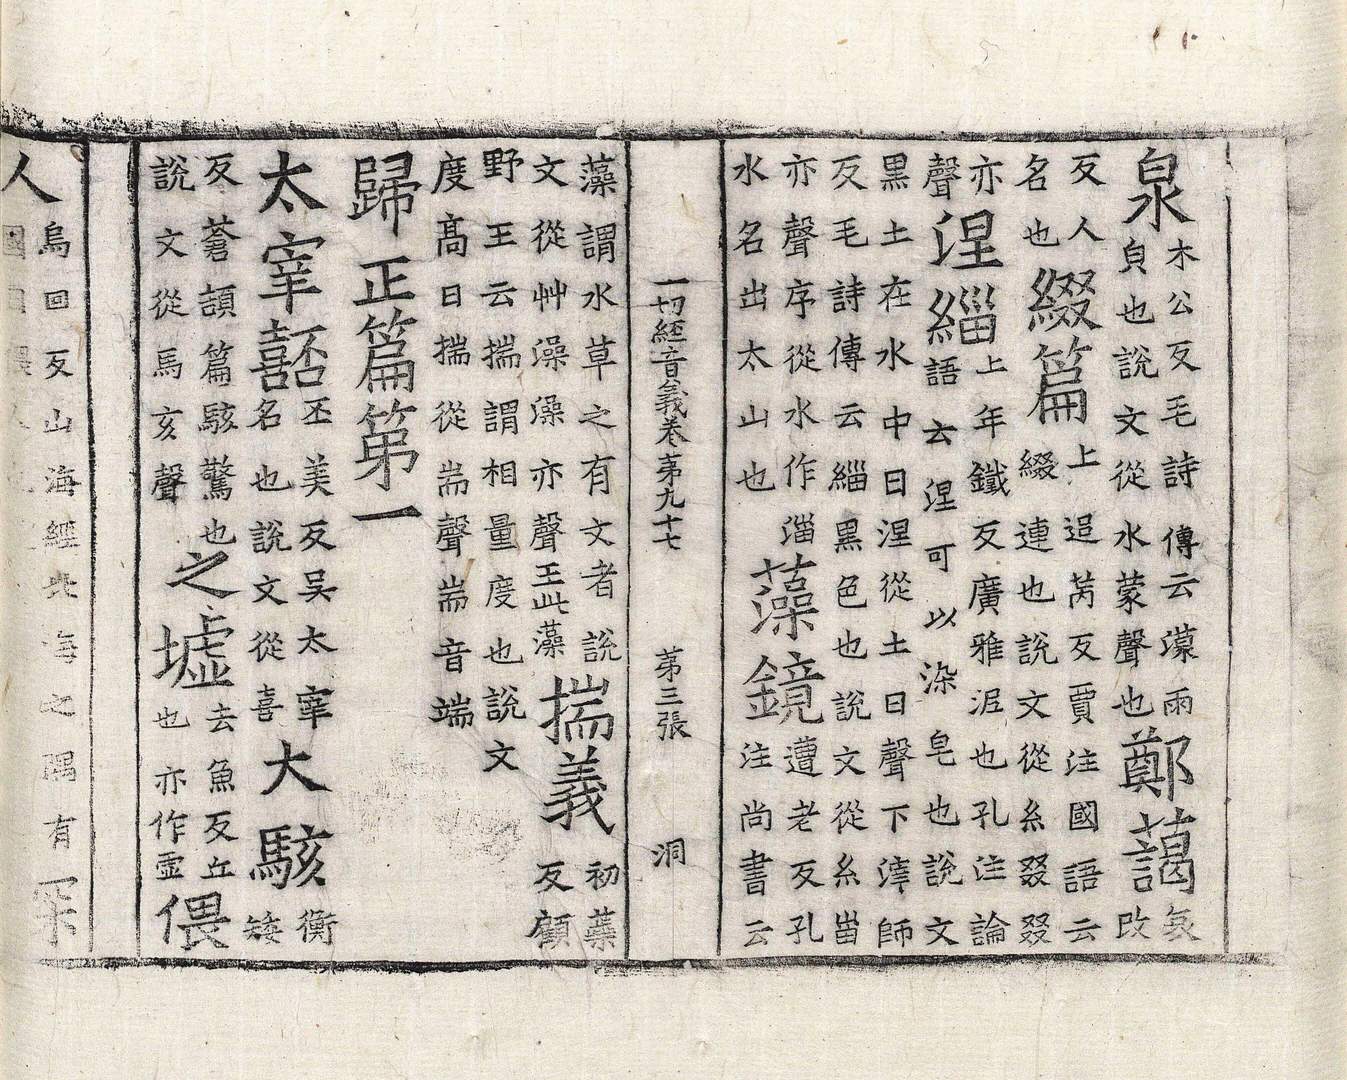 泉
木公反毛詩傳云濛雨
皃也說文從水蒙聲也
鄭藹
哀
改
反人
名也
綴篇
上迢芮反賈注國語云
綴連也說文從糸叕叕
亦
聲
涅緇
上年鐵反廣雅泥也孔注論
語云涅可以染皂也說文
黑土在水中曰涅從土曰聲下滓師
反毛詩傳云緇黑色也說文從糸甾
亦聲序從水作淄
水名出太山也
藻鏡
遭老反孔
注尚書云
一切經音義卷第九十七 第三張 洞
藻謂水草之有文者說
文從艸澡澡亦聲藻
揣義
初蘂
反顧
野王云揣謂相量度也說文
度高曰揣從耑聲耑音端
歸正篇第一
太宰嚭
丕美反吳太宰
名也說文從喜
大駭
衡
矮
反蒼頡篇駭驚也
說文從馬亥聲
之墟
去魚反丘
也亦作虛
偎
人
烏回反山海經北海之隅有